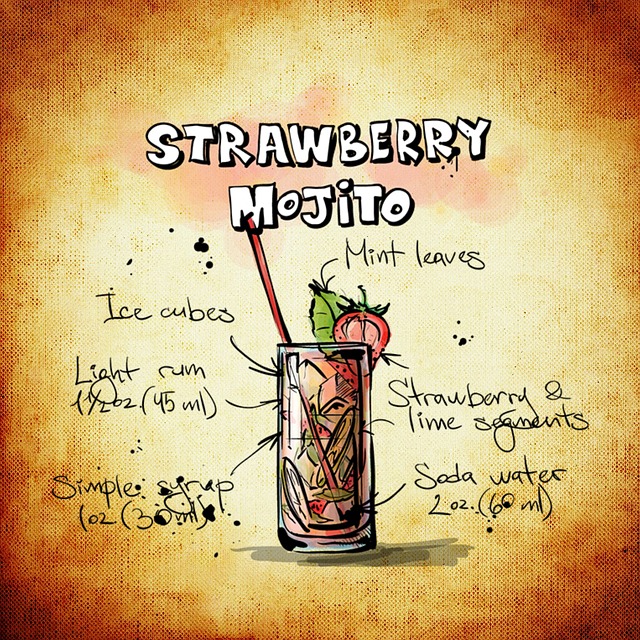 STRAWBERRY
MOJiTO
Mint leaves
Ice cubes
Light rum
1 1/2oz.(45 ml)
Strawberry &
lime segments
Simple syrup
1oz (30ml)
Soda water
2oz.(60 ml)